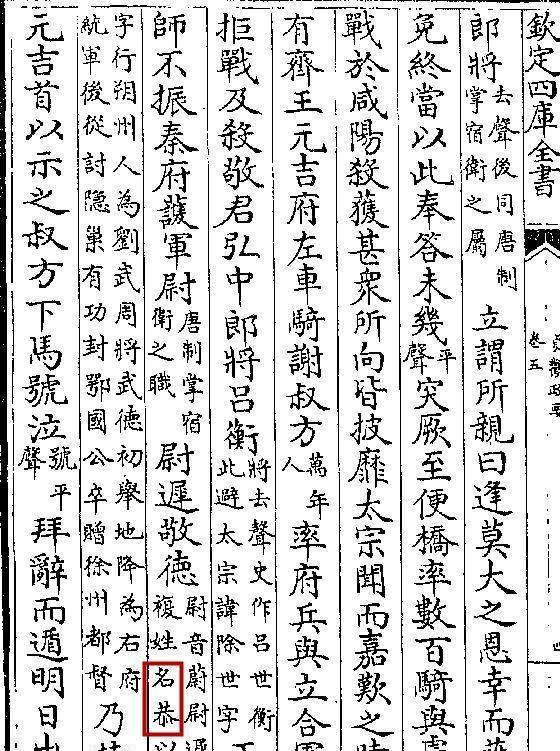 欽定四庫全書
卷五
郎將去聲後同唐制掌宿衛之屬立謂所親曰逢莫大之恩幸而
免終當以此奉答未幾平聲突厥至便橋率數百騎與
戰於咸陽殺獲甚衆所向皆披靡太宗聞而嘉歎之時
有齊王元吉府左車騎謝叔方萬年人率府兵與立合
拒戰及殺敬君弘中郎將吕衡將去聲史作吕世衡此避太宗諱除世字
師不振秦府護軍尉唐制掌宿衛之職尉遲敬德尉音蔚尉遲複姓名恭以
字行朔州人為劉武周將武德初舉地降為右府統軍後從討隐巢有功封鄂國公卒贈徐州都督乃
元吉首以示之叔方下馬號泣號平聲拜辭而遁明日